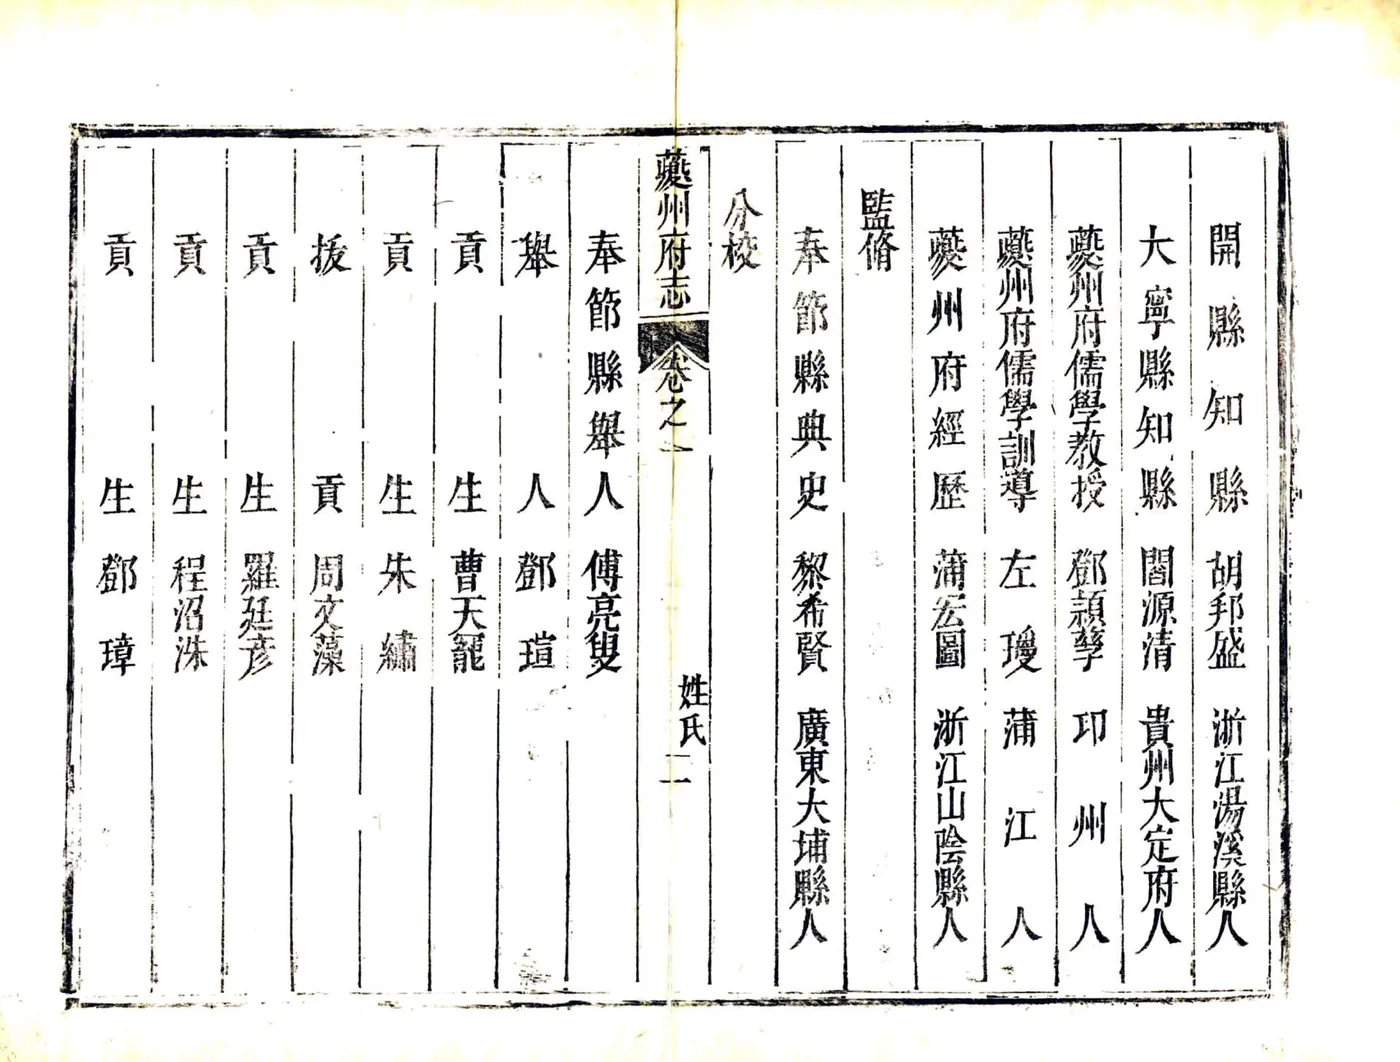 開縣知縣胡邦盛浙江湯溪縣人
大寧縣知縣閻源清貴州大定府人
夔州府儒學教授鄧穎孳印州人
夔州府儒學訓導左璦蒲江人
夔州府經歷蒲宏圖浙江山陰縣人
監脩
奉節縣典史黎希賢廣東大埔縣人
分校
夔州府志 卷之一 姓氏 二
奉節縣舉人傅亮叟
舉人鄧瑄
貢生曹天寵
貢生朱繡
拔貢周文藻
貢生羅廷彦
貢生程沼洙
貢生鄧瑋